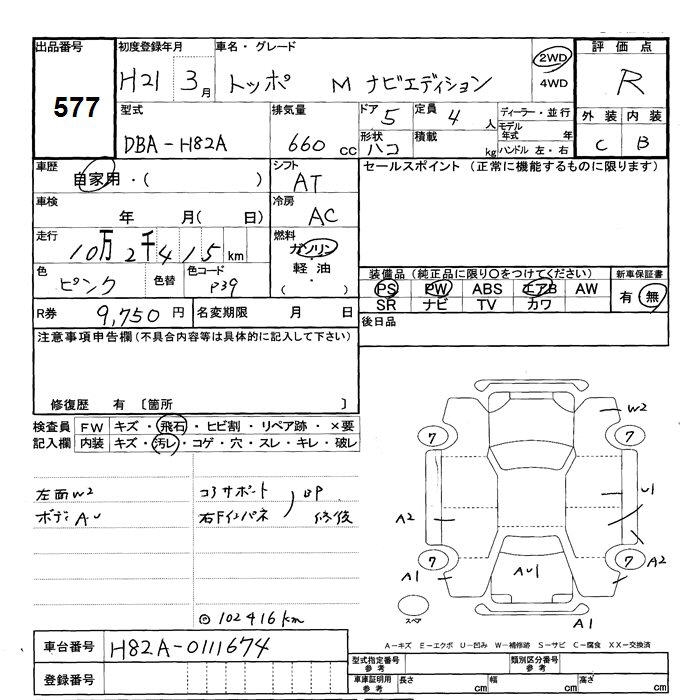 出品番号 初度登録年月 車名・グレード 2WD 評価点
577 H21 3月 トッポ M ナビエディション 4WD R
型式 排気量 ドア 5 定員 4人 ディーラー・並行 外装 内装
DBA-H82A 660cc 形状 ハコ 積載 kg モデル年式 年 C B
ハンドル 左・右
車歴 自家用・( ) シフト AT セールスポイント (正常に機能するものに限ります)
車検 年 月( 日) 冷房 AC
走行 10万2千415km 燃料 ガソリン
軽油
( ・ )
色 ピンク 色替 色コード P39
装備品 (純正品に限り〇をつけてください) 新車保証書
PS PW ABS エアB AW 有・無
SR ナビ TV カワ
R券 9,750円 名変期限 月 日 後日品
注意事項申告欄(不具合内容等は具体的に記入して下さい)
修復歴 有 〔箇所 〕
検査員 FW キズ・飛石・ヒビ割・リペア跡・×要
記入欄 内装 キズ・汚レ・コゲ・穴・スレ・キレ・破レ
左面W2 コアサポート BP
ボディAU 右Fインパネ 修後
◎102416km
W2
7 7
U1
A2
7 7 A2
A1 AU1
スペア A1
A-キズ E-エクボ U-凹み W-補修跡 S-サビ C-腐食 XX-交換済
車台番号 H82A-0111674
登録番号
型式指定番号 参考 類別区分番号 参考
車庫証明用 参考 長さ cm 幅 cm 高さ cm